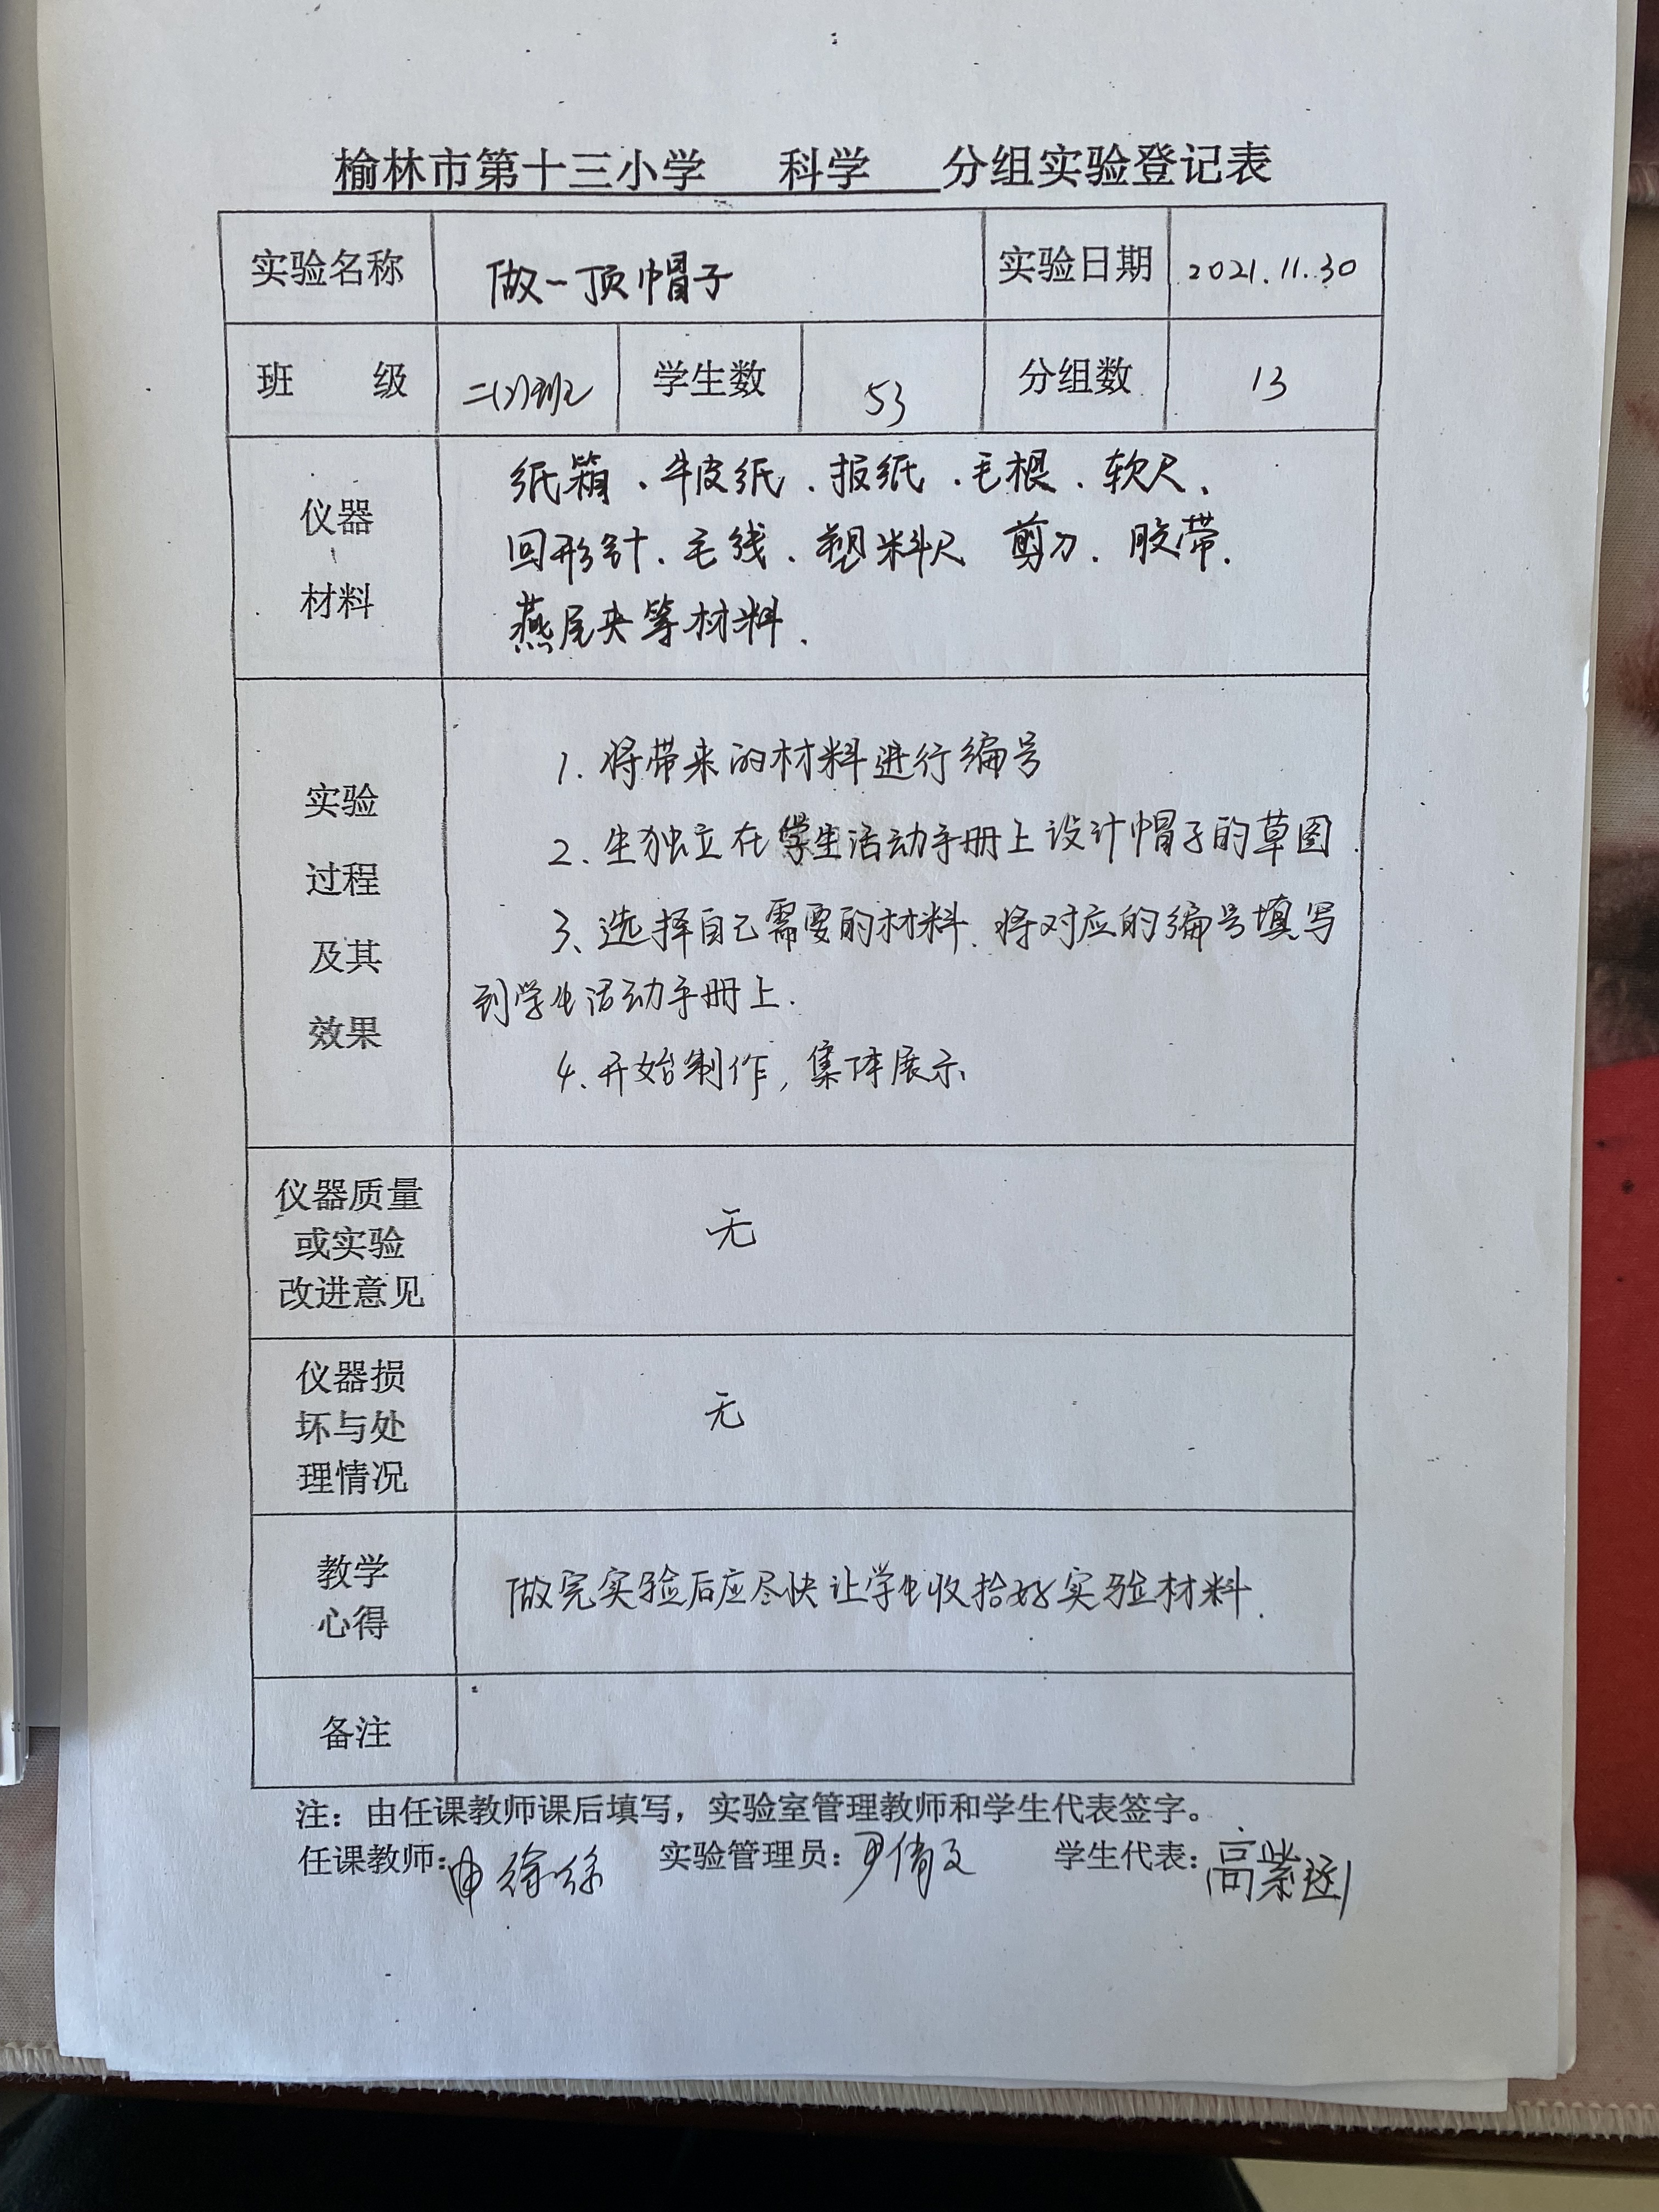 榆林市第十三小学 科学 分组实验登记表
实验名称 做一顶帽子 实验日期 2021.11.30
班 级 二(2)班 学生数 53 分组数 13
仪器
材料
纸箱、牛皮纸、报纸、毛根、软尺、
回形针、毛线、塑料尺 剪刀、胶带.
燕尾夹等材料.
实验
过程
及其
效果
1. 将带来的材料进行编号
2、生独立在学生活动手册上设计帽子的草图.
3、选择自己需要的材料、将对应的编号填写
到学生活动手册上.
4、开始制作,集体展示
仪器质量
或实验
改进意见
无
仪器损
坏与处
理情况
无
教学
心得
做完实验后应尽快让学生收拾好实验材料.
备注
注：由任课教师课后填写，实验室管理教师和学生代表签字。
任课教师: 实验管理员: 尹倩文 学生代表: 高紫